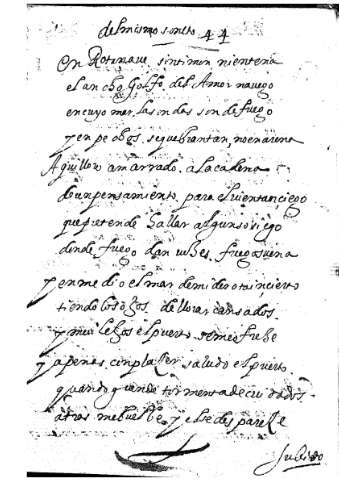 del mismo soneto 44
En Rota nave sin timon ni entena
el ancho Golfo del Amor navego
en cuyo mar las ondas son de fuego
y en peñas se quebrantan, no en arena
Aqui llow amarrado a la cadena
de un pensamiento para el vientan çiego
que pretende hallar algun sosiego
donde fuego dan nubes fuego suena
y en medio el mar de mi derota inçierto
tiendo los ojos de llorar cansados
y mui lexos el puerto se me ofreze
y apenas con plazer saludo el puerto
quando
tormenta de cuidados
atras me buelbe y el se despareze